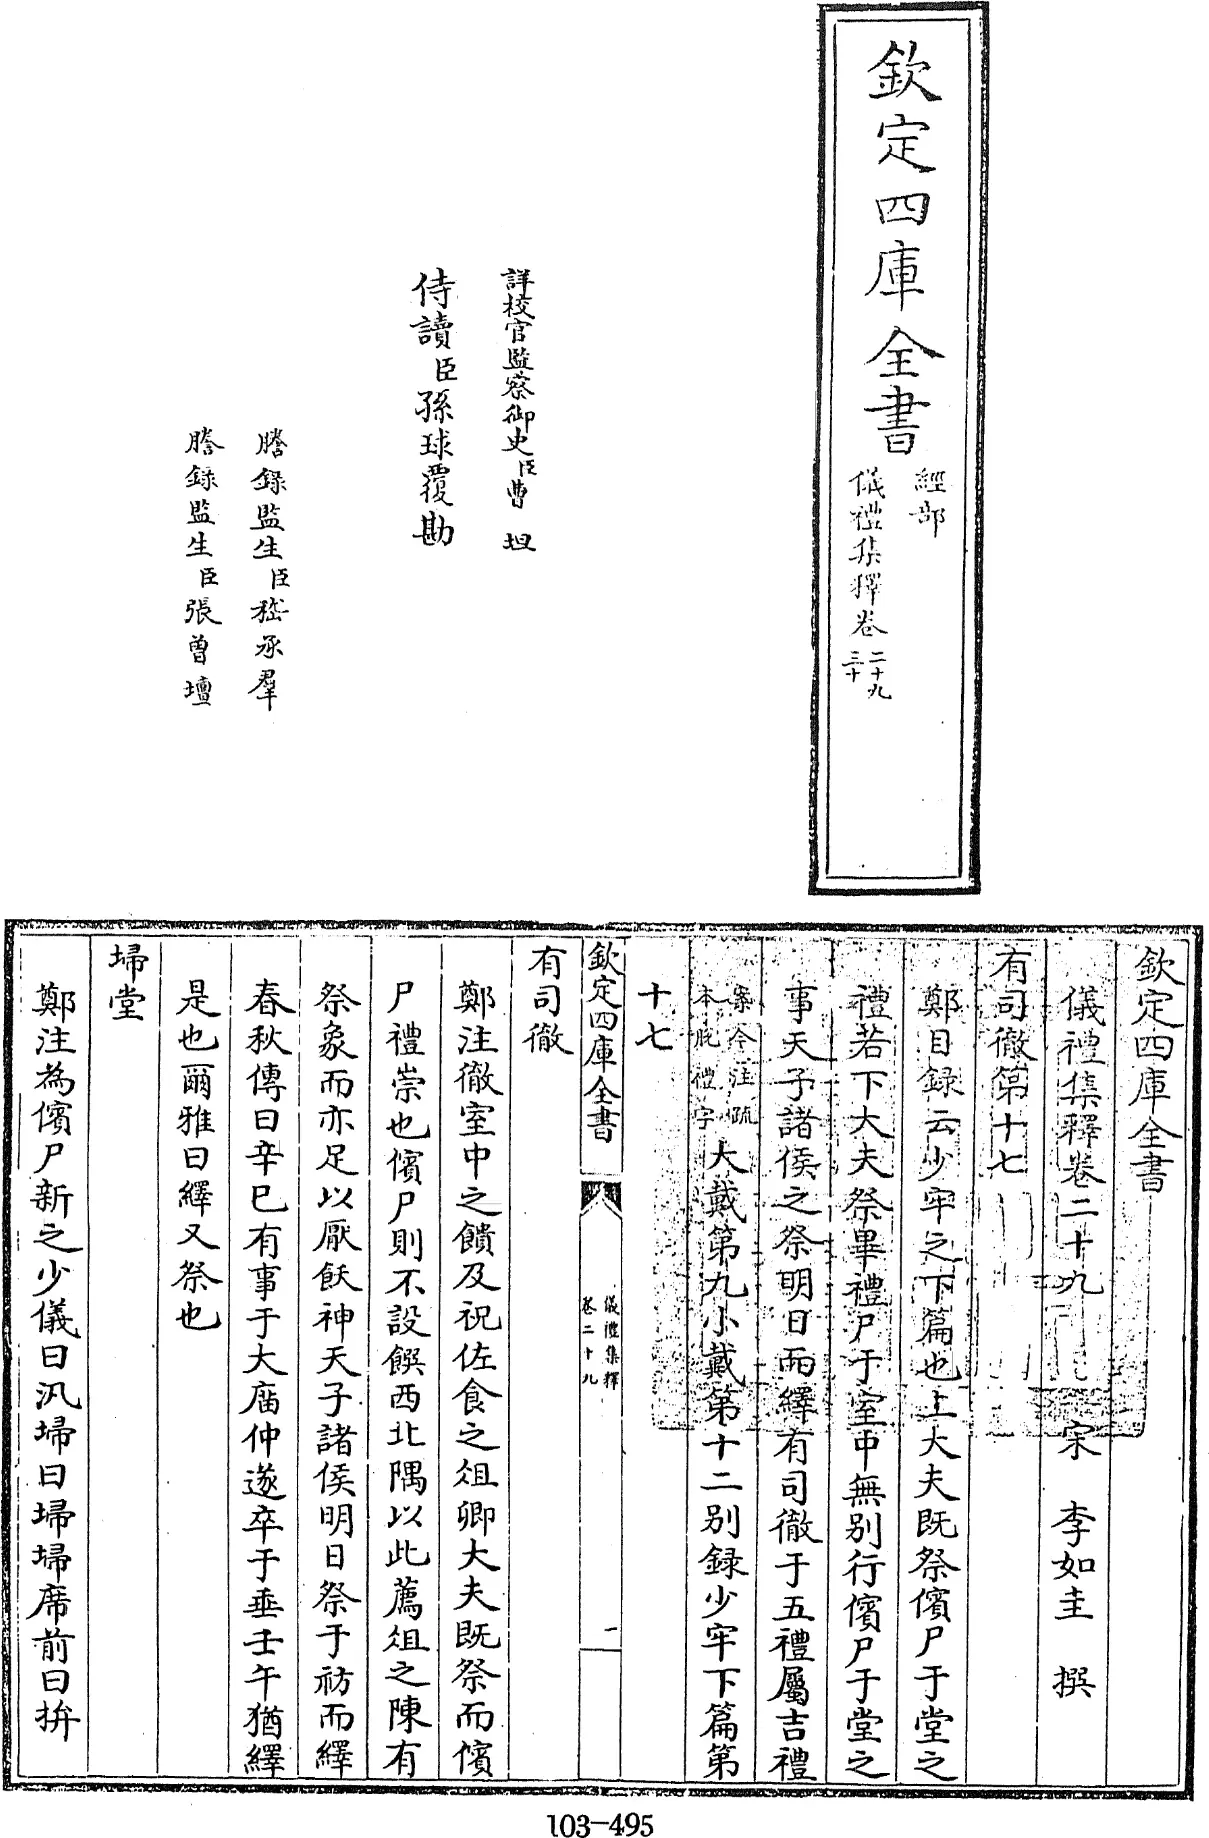 欽定四庫全書
經部
儀禮集釋卷二十九
三十
詳校官監察御史臣曹坦
侍讀臣孫球覆勘
謄錄監生臣嵇承羣
謄錄監生臣張曾壇
欽定四庫全書
儀禮集釋卷二十九 宋 李如圭 撰
有司徹第十七
鄭目録云少牢之下篇也上大夫既祭儐尸于堂之
禮若下大夫祭畢禮尸于室中無别行儐尸于堂之
事天子諸侯之祭明日而繹有司徹于五禮屬吉禮
案今注疏
本脫禮字
大戴第九小戴第十二别録少牢下篇第
十七
欽定四庫全書
儀禮集釋
卷二十九
一
有司徹
鄭注徹室中之饋及祝佐食之俎卿大夫既祭而儐
尸禮崇也儐尸則不設饌西北隅以此薦俎之陳有
祭象而亦足以厭飫神天子諸侯明日祭于祊而繹
春秋傳曰辛巳有事于大廟仲遂卒于垂壬午猶繹
是也爾雅曰繹又祭也
埽堂
鄭注為儐尸新之少儀曰汎埽曰埽埽席前曰拚
103-495